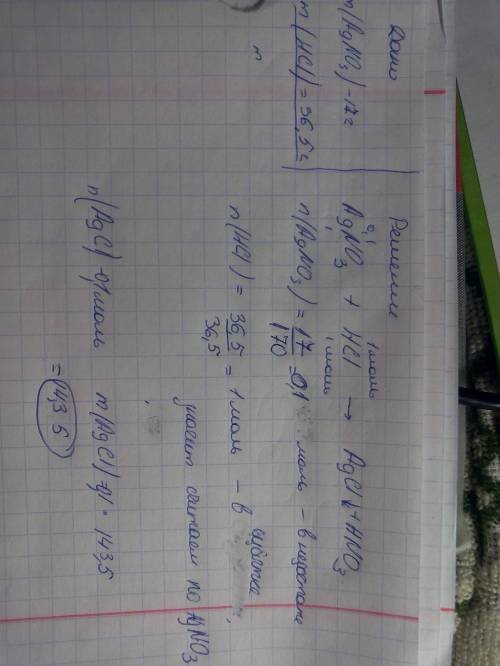 Дано
m(AgNO₃) - 17 г
m(HCl) = 36,5 г
n
Решение
0,1 1 моль
AgNO₃ + HCl → AgCl↓ + HNO₃
1 1 моль
n(AgNO₃) = 17/170 = 0,1 моль – в недостатке
n(HCl) = 36,5/36,5 = 1 моль – в избытке,
значит считаем по AgNO₃
n(AgCl) - 0,1 моль m(AgCl) = 0,1 · 143,5
= 14,35